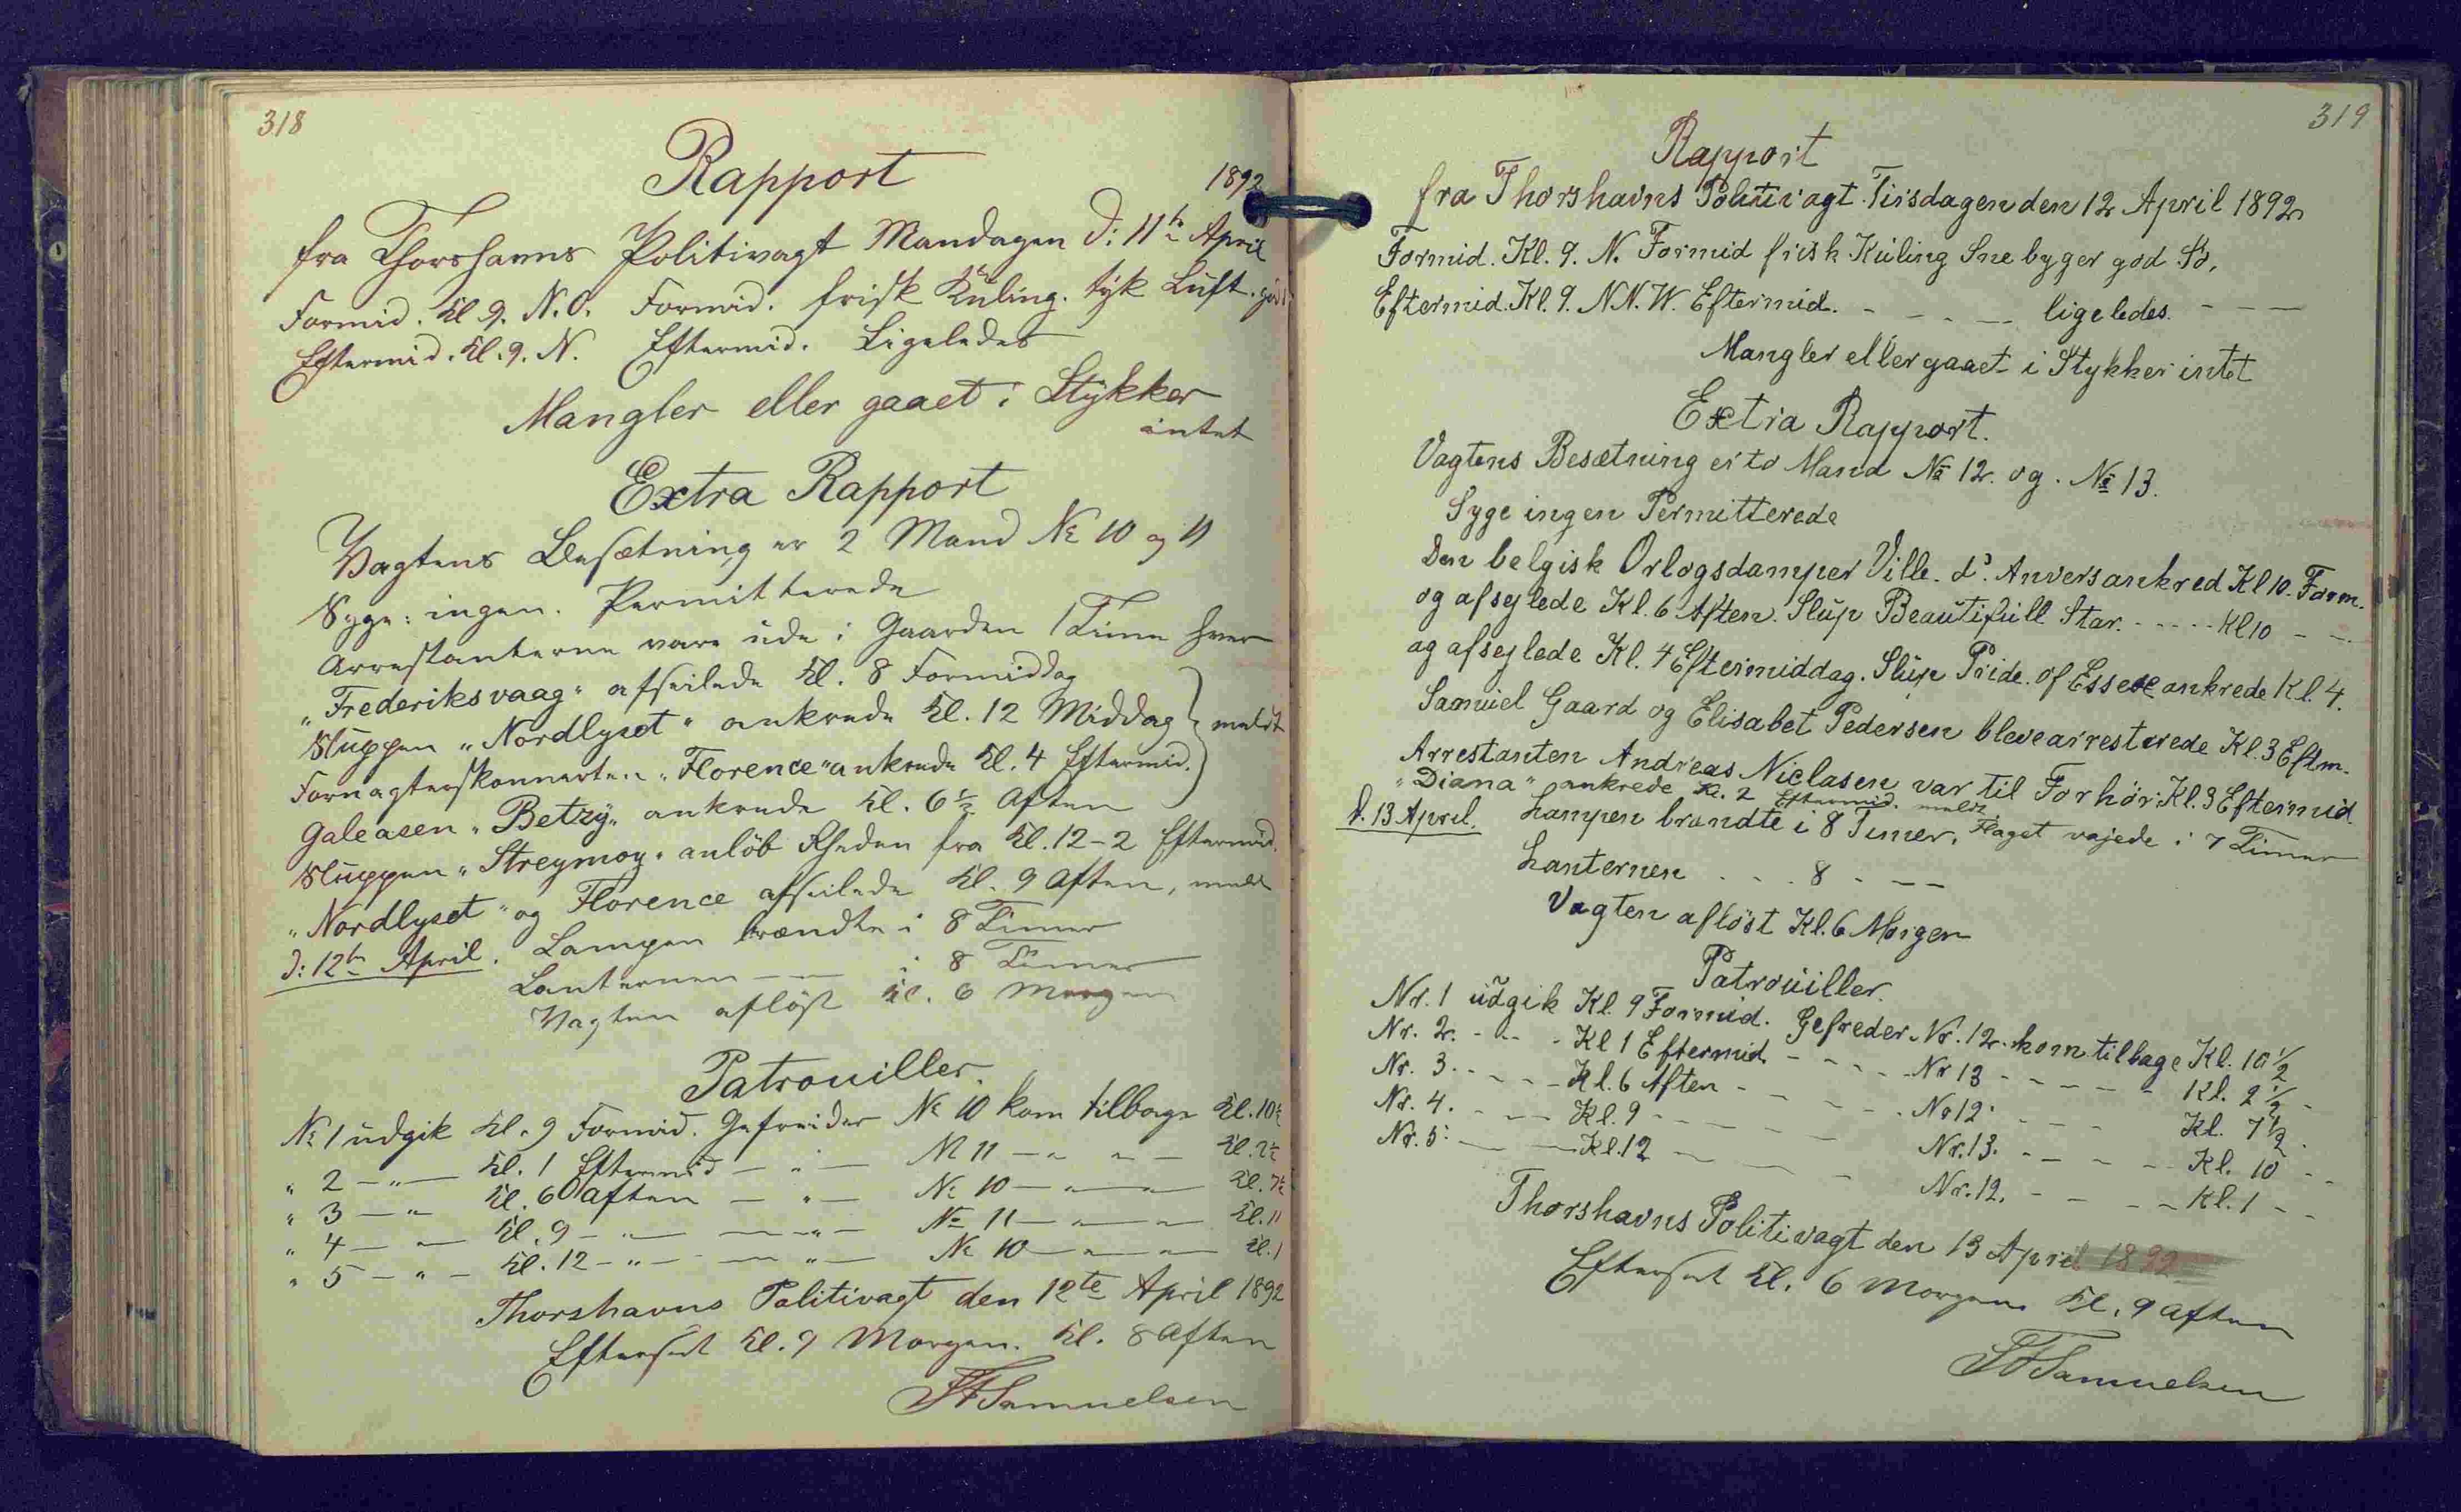 318
Rapport
1892
fra Thorshavns Politivagt Mandagen d: 11te April
Formid. Kl 9. N.O. Formid. frisk Kuling. tyk Luft. god
Eftermid. Kl. 9. N. Eftermid. Ligeledes
Mangler eller gaaet i Stykker
intet
Extra Rapport
Vagtens Besætning er 2 Mand No 10 og 11
Syge: ingen. Permitterede
Arrestanterne vare ude i Gaarden 1 Time hver
"Frederiksvaag" afseilede Kl. 8 Formiddag
Sluppen "Nordlyset" ankrede Kl. 12 Middag
meldt
Fornagterskonnerten "Florence" ankrede Kl. 4 Eftermid.
Galeasen "Betzy" ankrede Kl. 6½ Aften
Sluppen "Streymoy" anløb Rheden fra Kl. 12-2 Eftermid.
"Nordlyset" og Florence afseilede Kl. 9 Aften, meldt
d: 12te April. Lampen brændte i 8 Timer
Lanternen — — i 8 Timer
Vagten afløst Kl. 6 Morgen
Patrouiller.
No 1 udgik Kl. 9 Formid. Gefreider No 10 kom tilbage Kl. 10½
" 2 — " — Kl. 1 Eftermid — " — No 11 — " — " — Kl. 2½
" 3 — " Kl. 6 Aften — " — No 10 — " — " — Kl. 7½
" 4 — " — Kl. 9 — " — — " — No 11 — " — " — Kl. 11
" 5 — " — Kl. 12 — " — — " — No 10 — " — " — Kl. 1
Thorshavns Politivagt den 12te April 1892
Efterset Kl. 9 Morgen. Kl. 8 Aften
Samuelsen
319
Rapport
fra Thorshavns Politivagt Tirsdagen den 12 April 1892
Formid. Kl. 9. N. Formid frisk Kuling Sne byger god Sø.
Eftermid. Kl. 9. NN.W. Eftermid. - - - - ligeledes. - - -
Mangler eller gaaet i Stykker intet
Extra Rapport.
Vagtens Besætning er to Mand No 12. og. No 13.
Syge ingen Permitterede
Den belgisk Orlogsdamper Ville. d'. Anvers ankred Kl 10. Form.
og afsejlede Kl. 6 Aften. Slup Beautifull Star. - - - - Kl 10 - - -
og afsejlede Kl. 4 Eftermiddag. Slup Pride. of Essexe ankrede Kl. 4.
Samuel Gaard og Elisabet Pedersen bleve arresterede Kl. 3 Eftm.
Arrestanten Andreas Niclasen var til Forhör. Kl. 3 Eftermid
"Diana" ankrede Kl. 2 Eftermid. meldt
d. 13 April. Lampen brændte i 8 Timer. Flaget vajede i 7 Timer
Lanternen - - - 8 - - -
Vagten aflöst Kl. 6 Morgen
Patrouiller.
Nr. 1 udgik Kl. 9 Formid. Gefreder. Nr. 12. kom tilbage Kl. 10½
Nr. 2. - - - Kl 1 Eftermid - - - - Nr 13 - - - - - Kl. 2½ -
Nr. 3. - - - - Kl. 6 Aften - - - - - No 12. - - - - Kl. 7½ .
Nr. 4. - - - Kl. 9 - - - - - - Nr. 13. - - - - Kl. 10 - -
Nr. 5. - - - Kl. 12 - - - - Nr. 12. - - - - Kl. 1 - -
Thorshavns Politivagt den 13 April 1892
Efterset Kl. 6 Morgen Kl. 9 Aften
Samuelsen